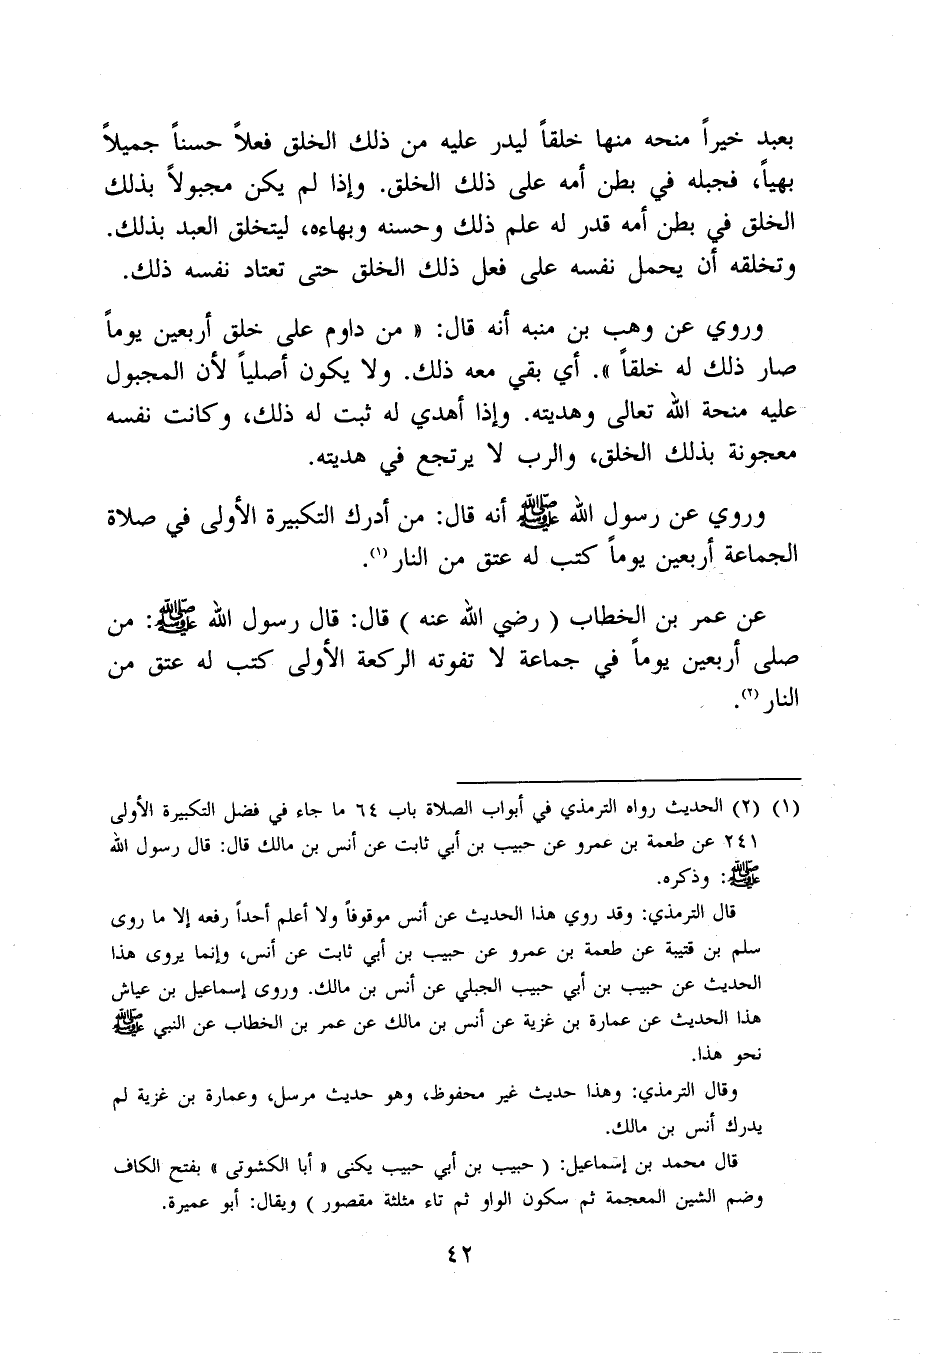 بعبد خيراً منحه منها خلقاً ليدر عليه من ذلك الخلق فعلاً حسناً جميلاً
بهياً، فجبله في بطن أمه على ذلك الخلق. وإذا لم يكن مجبولاً بذلك
الخلق في بطن أمه قدر له علم ذلك وحسنه وبهاءه، ليتخلق العبد بذلك.
وتخلقه أن يحمل نفسه على فعل ذلك الخلق حتى تعتاد نفسه ذلك.
وروي عن وهب بن منبه أنه قال: « من داوم على خلق أربعين يوماً
صار ذلك له خلقاً ». أي بقي معه ذلك. ولا يكون أصلياً لأن المجبول
عليه منحة الله تعالى وهديته. وإذا أهدي له ثبت له ذلك، وكانت نفسه
معجونة بذلك الخلق، والرب لا يرتجع في هديته.
وروي عن رسول الله ﷺ أنه قال: من أدرك التكبيرة الأولى في صلاة
الجماعة أربعين يوماً كتب له عتق من النار (١).
عن عمر بن الخطاب ( رضي الله عنه ) قال: قال رسول الله ﷺ: من
صلى أربعين يوماً في جماعة لا تفوته الركعة الأولى كتب له عتق من
النار (٢).
(١) (٢) الحديث رواه الترمذي في أبواب الصلاة باب ٦٤ ما جاء في فضل التكبيرة الأولى
٢٤١ عن طعمة بن عمرو عن حبيب بن أبي ثابت عن أنس بن مالك قال: قال رسول الله
ﷺ: وذكره.
قال الترمذي: وقد روي هذا الحديث عن أنس موقوفاً ولا أعلم أحداً رفعه إلا ما روى
سلم بن قتيبة عن طعمة بن عمرو عن حبيب بن أبي ثابت عن أنس، وإنما يروى هذا
الحديث عن حبيب بن أبي حبيب الجبلي عن أنس بن مالك. وروى إسماعيل بن عياش
هذا الحديث عن عمارة بن غزية عن أنس بن مالك عن عمر بن الخطاب عن النبي ﷺ
نحو هذا.
وقال الترمذي: وهذا حديث غير محفوظ، وهو حديث مرسل، وعمارة بن غزية لم
يدرك أنس بن مالك.
قال محمد بن إسماعيل: ( حبيب بن أبي حبيب يكنى « أبا الكشوتى » بفتح الكاف
وضم الشين المعجمة ثم سكون الواو ثم تاء مثلثة مقصور ) ويقال: أبو عميرة.
٤٢